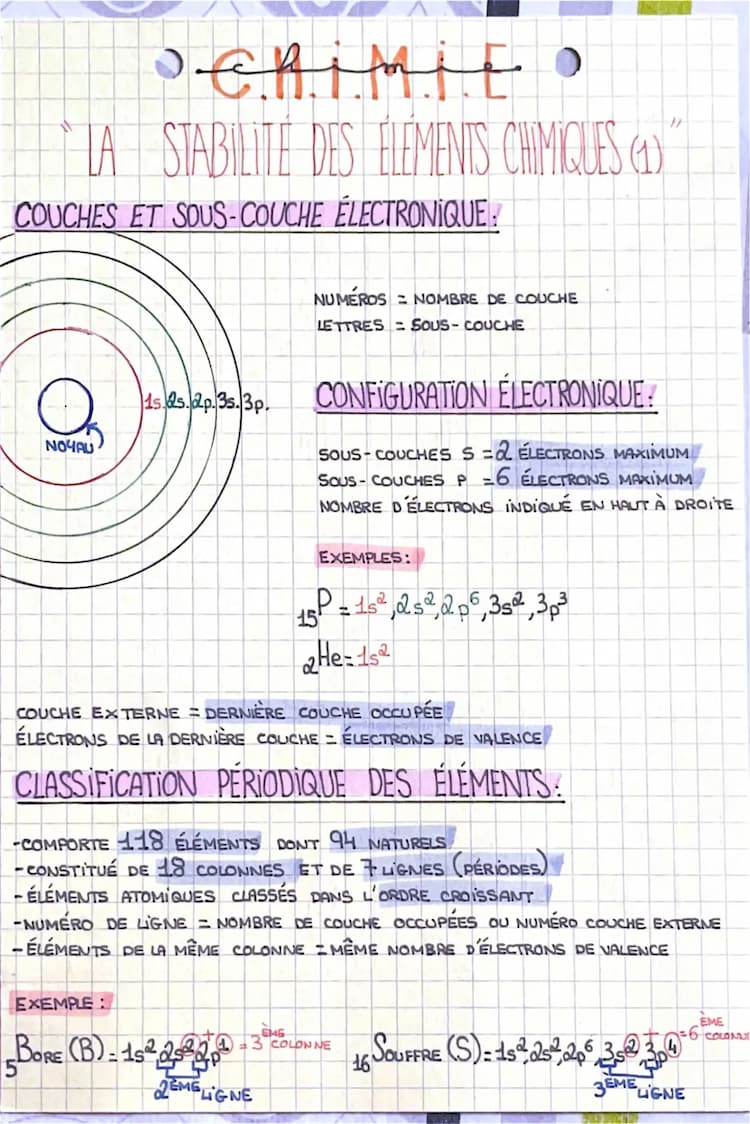 C.H.I.M.I.E
chimie
"LA STABILITÉ DES ÉLÉMENTS CHIMIQUES (1)"
COUCHES ET SOUS-COUCHE ÉLECTRONIQUE:
NUMÉROS = NOMBRE DE COUCHE
LETTRES = SOUS-COUCHE
1s.2s.2p.3s.3p.
NOYAU
CONFIGURATION ÉLECTRONIQUE:
SOUS-COUCHES S = 2 ÉLECTRONS MAXIMUM
SOUS-COUCHES P = 6 ÉLECTRONS MAXIMUM
NOMBRE D'ÉLECTRONS INDIQUÉ EN HAUT À DROITE
EXEMPLES:
₁₅P = 1s²,2s²,2p⁶,3s²,3p³
₂He = 1s²
COUCHE EXTERNE = DERNIÈRE COUCHE OCCUPÉE
ÉLECTRONS DE LA DERNIÈRE COUCHE = ÉLECTRONS DE VALENCE
CLASSIFICATION PÉRIODIQUE DES ÉLÉMENTS:
-COMPORTE 118 ÉLÉMENTS DONT 94 NATURELS
-CONSTITUÉ DE 18 COLONNES ET DE 7 LIGNES (PÉRIODES)
-ÉLÉMENTS ATOMIQUES CLASSÉS DANS L'ORDRE CROISSANT
-NUMÉRO DE LIGNE = NOMBRE DE COUCHE OCCUPÉES OU NUMÉRO COUCHE EXTERNE
-ÉLÉMENTS DE LA MÊME COLONNE = MÊME NOMBRE D'ÉLECTRONS DE VALENCE
EXEMPLE:
₅BORE (B) = 1s²,2s²+2p¹ = 3 ÈME COLONNE
2ÈME LIGNE
₁₆SOUFFRE (S) = 1s²,2s²,2p⁶,3s²+3p⁴ = 6 ÈME COLONNE
3ÈME LIGNE